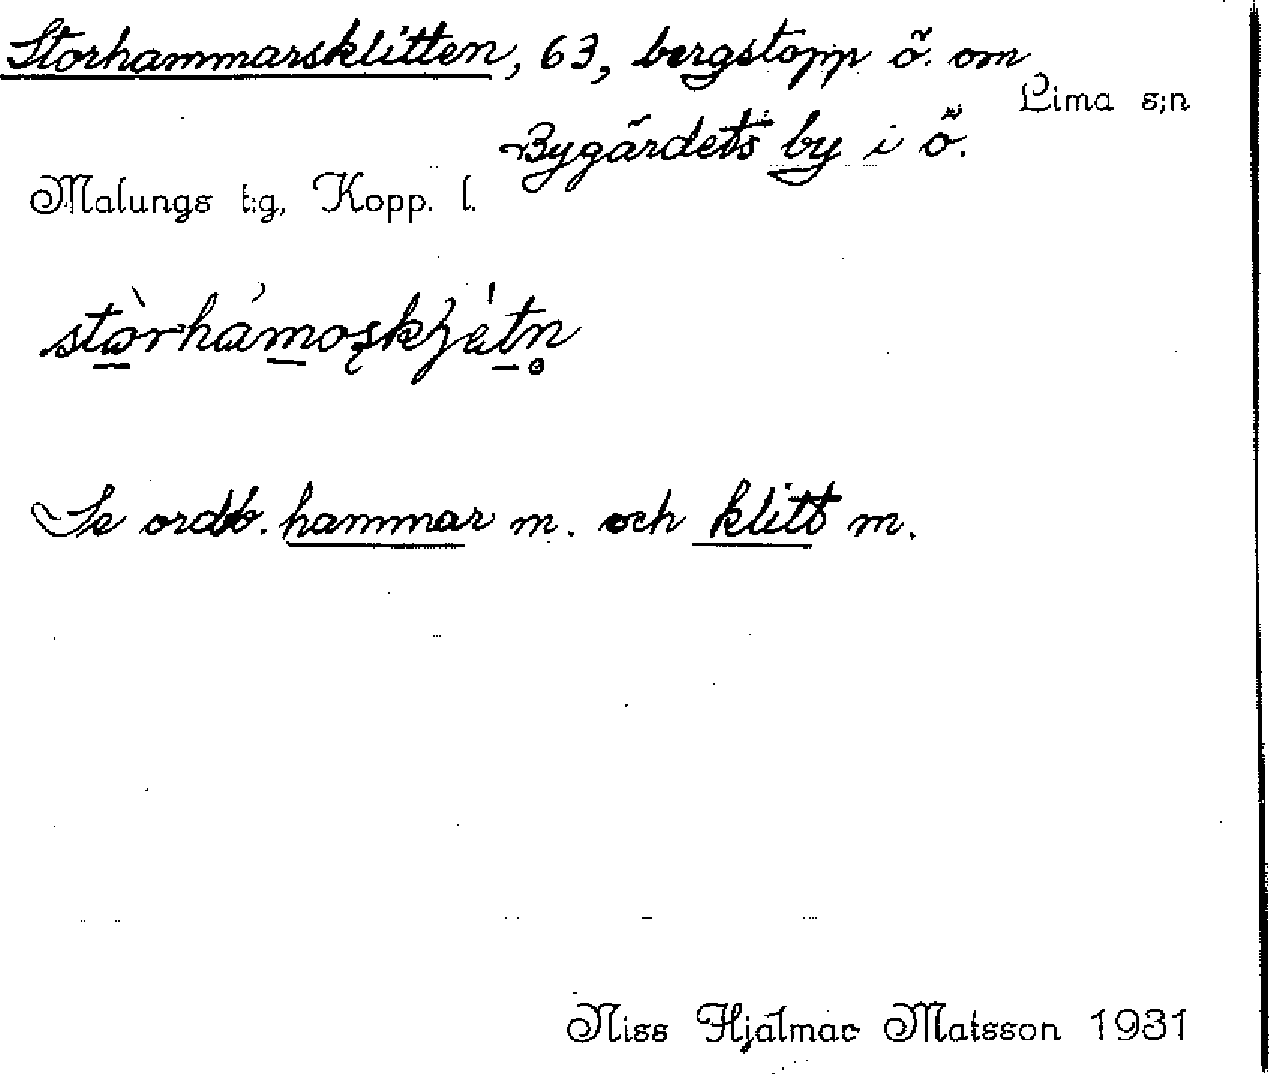 Storhammarsklitten, 63, bergstopp ö. om
Lima s:n
Bygärdets by i ö.
Malungs t:g, Kopp. l.
stòrhámoskjátn
Se ordb. hammar m. och klitt m.
Niss Hjalmar Matsson 1931